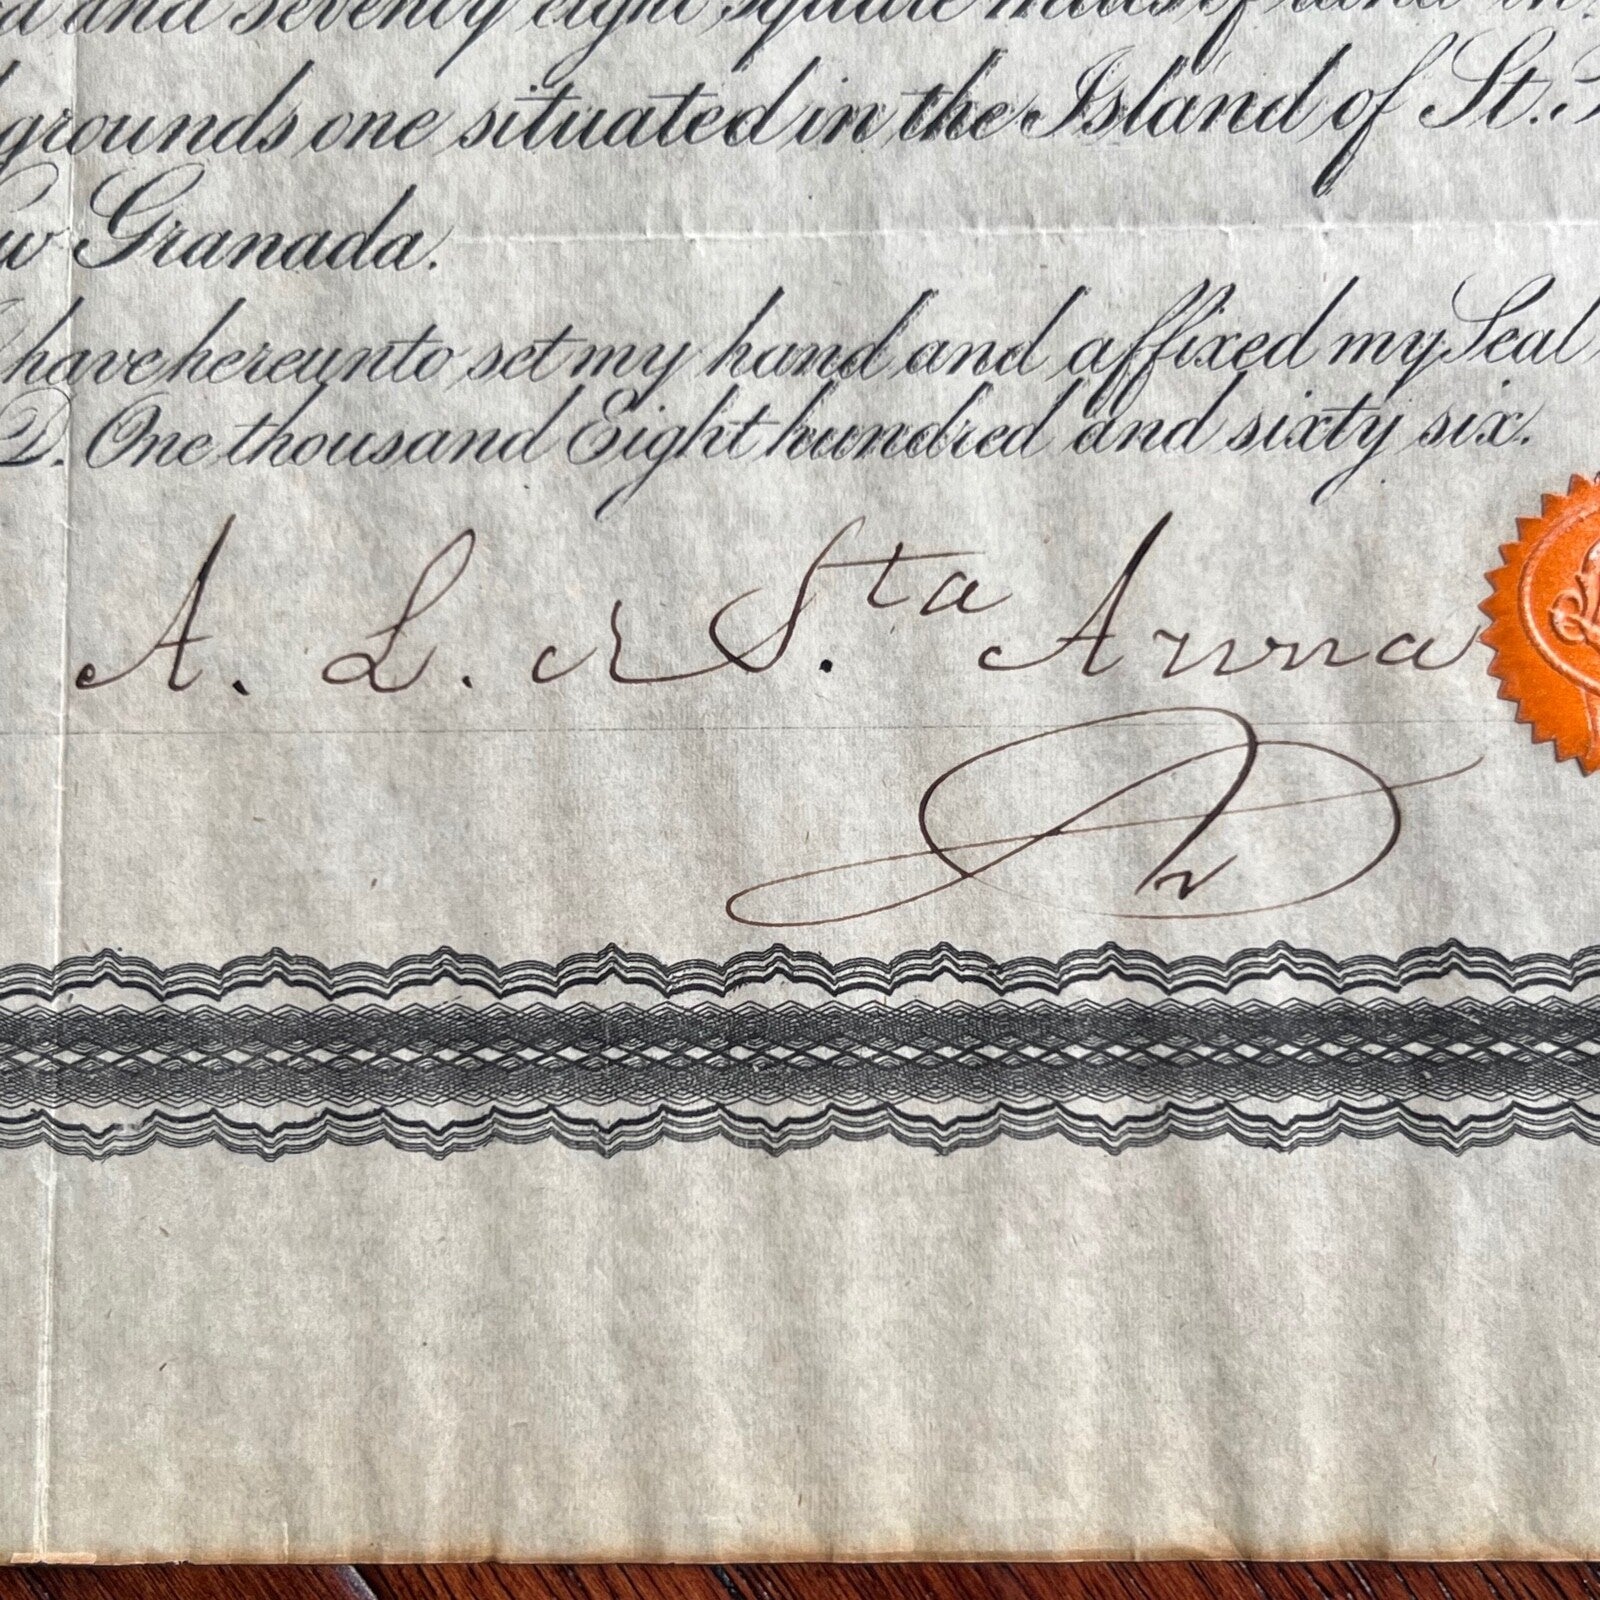 and seventy eight square miles of land in
grounds one situated in the Island of St.
Granada.
have hereunto set my hand and affixed my Seal
D. One thousand Eight hundred and sixty six.
A. L. de S.ta Anna